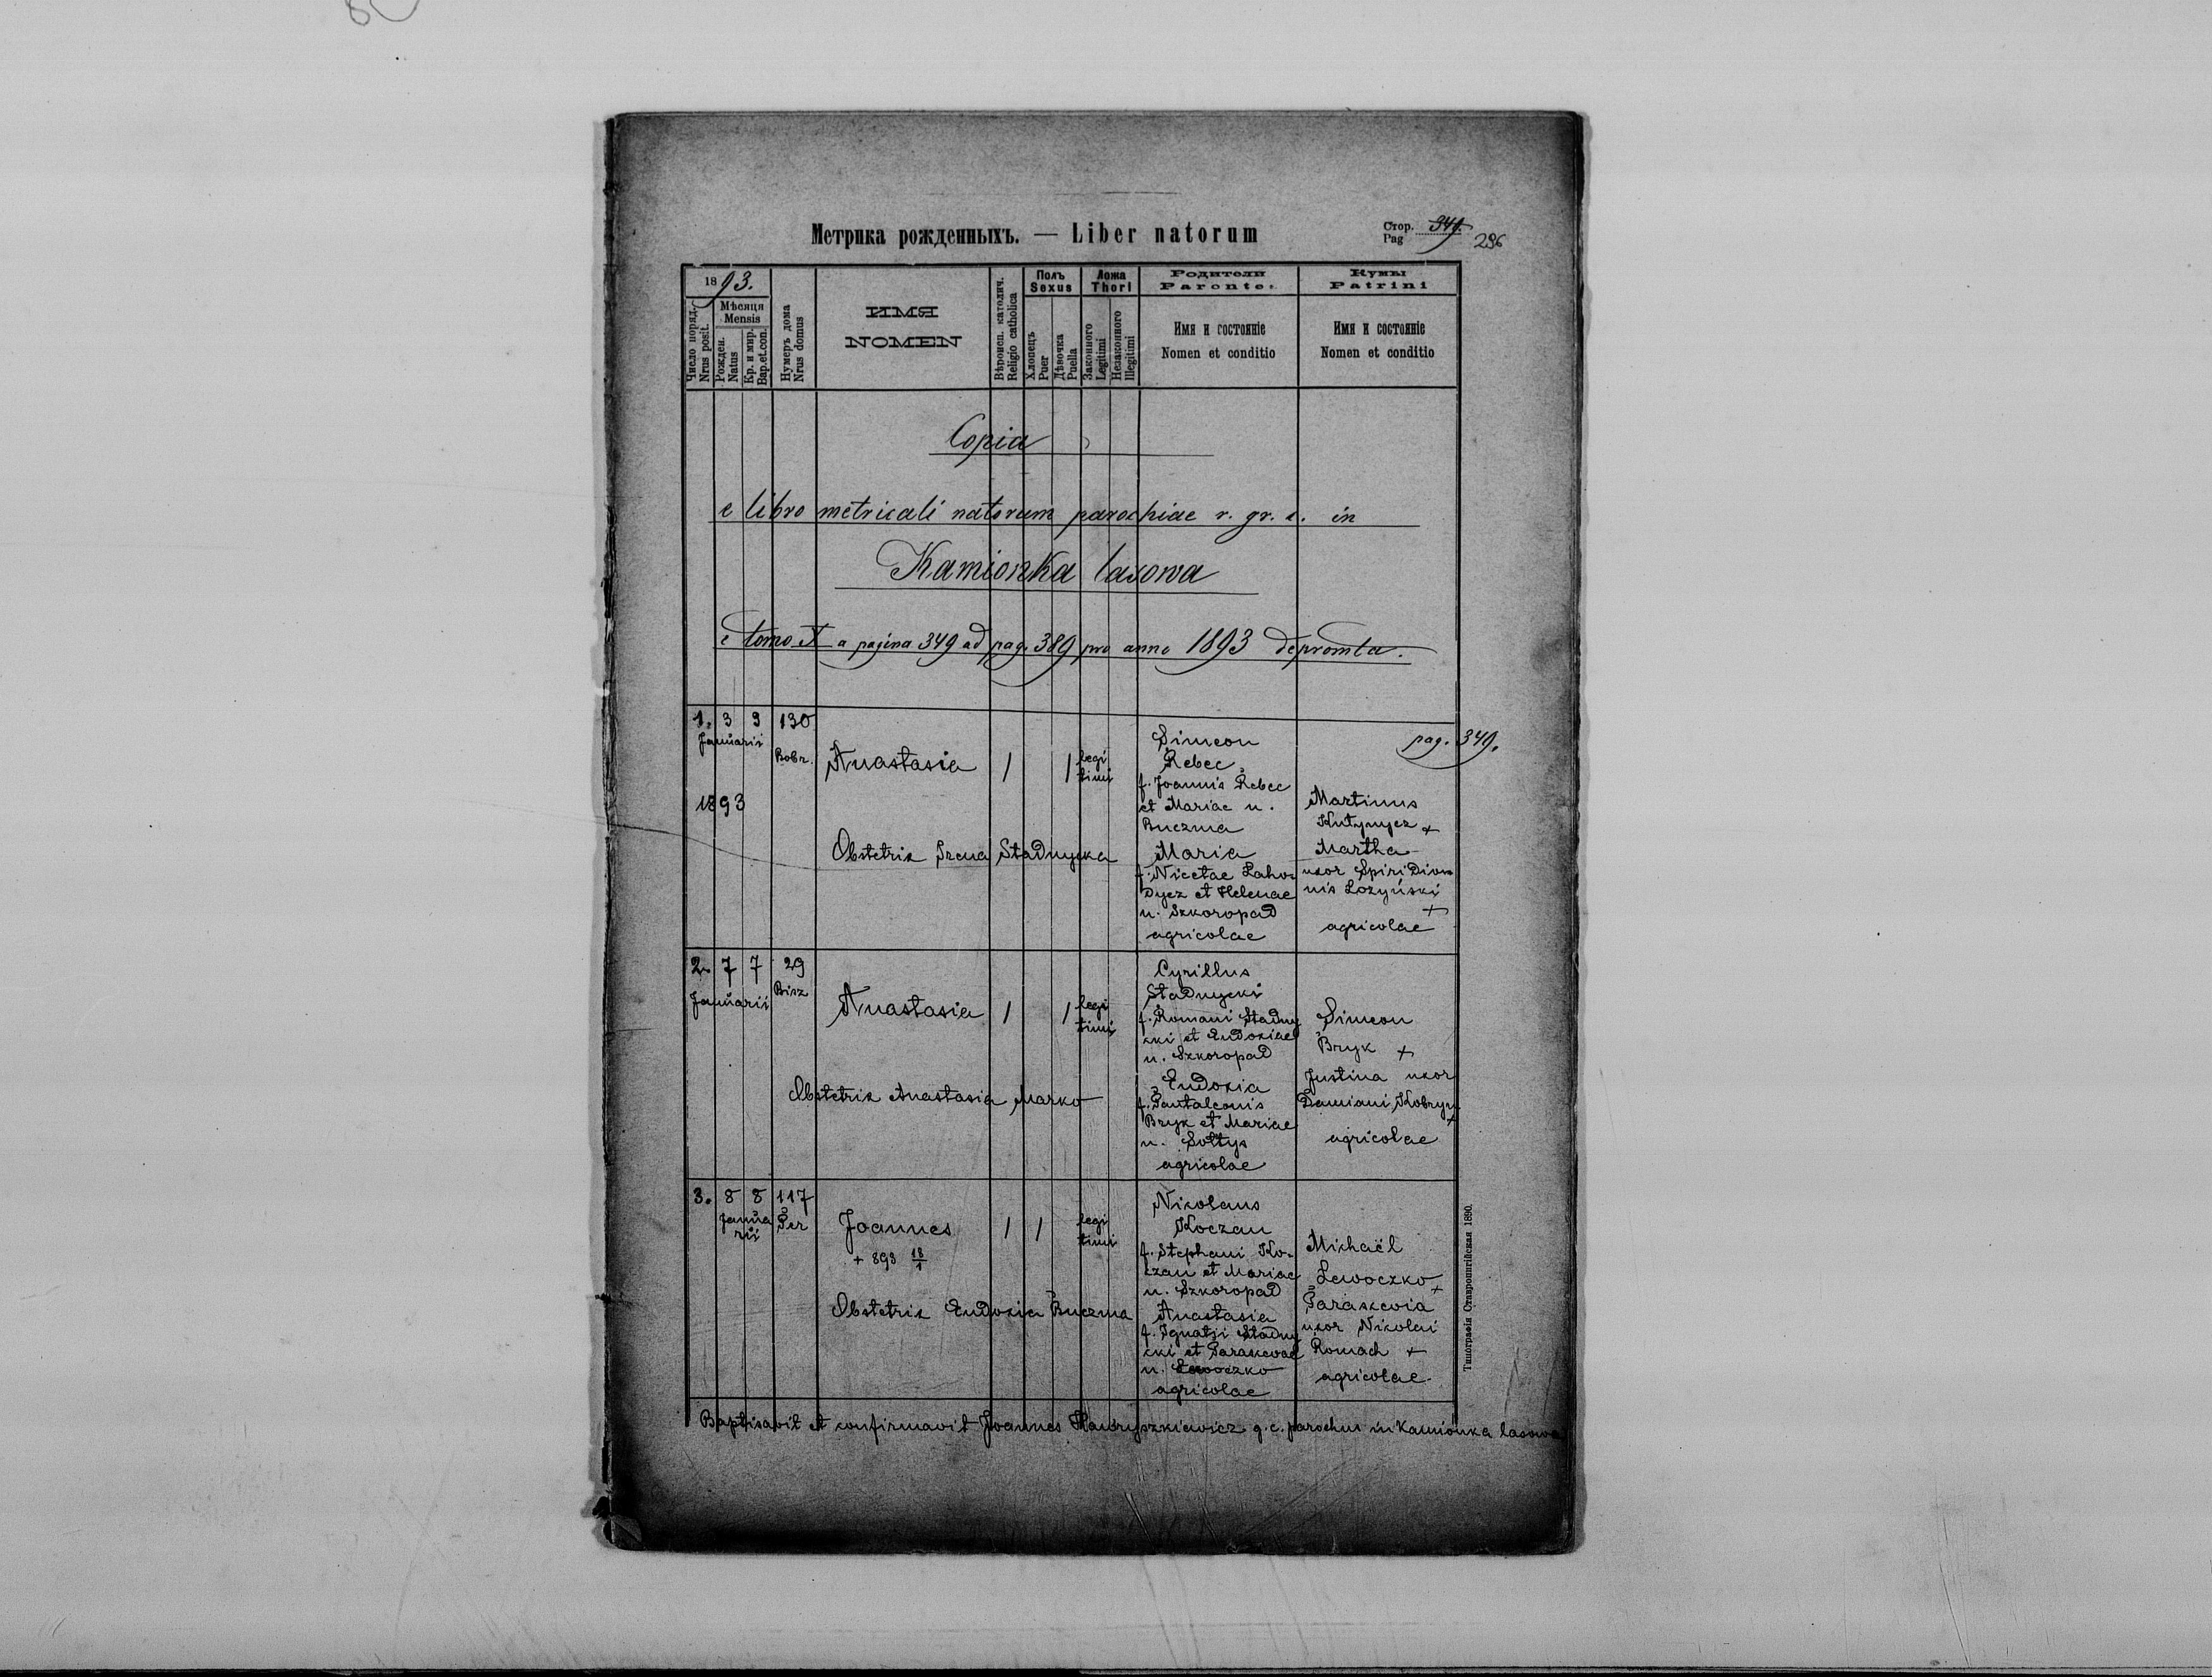 Метрика рожденныхъ. — Liber natorum
Стор. 349.
Pag 296
1893.
Число поряд.
Nrus posit.
Мѣсяця
Mensis
Рожден.
Natus
Кр. и мир.
Bap.et.con.
Нумеръ дома
Nrus domus
ИМЯ
NOMEN
Вѣроисп. католич.
Religio catholica
Полъ
Sexus
Хлопецъ
Puer
Дѣвочка
Puella
Ложа
Thori
Законного
Legitimi
Незаконного
Illegitimi
Родители
Parentes
Имя и состояніе
Nomen et conditio
Кумы
Patrini
Имя и состояніе
Nomen et conditio
Copia
e libro metricali natorum parochiae r. gr. c. in
Kamionka lasowa
e tomo X a pagina 349 ad pag. 389 pro anno 1893 depromta.
pag. 349.
1. 3 9 130
Januarii
Bobr.
1893
Anastasia
1 1 legi
timi
Obstetrix Irena Stadnycka
Simeon
Rebec
f. Joannis Rebec
et Mariae n.
Buczma
Maria
f. Nicetae Laho-
dycz et Helenae
n. Szkoropad
agricolae
Martinus
+
Martha
uxor Spiridion
nis Lozyński
+
agricolae
2. 7 7 29
Januarii
Bisz
Anastasia
1 1 legi
timi
Obstetrix Anastasia Marko
Cyrillus
Stadnycki
f. Romani Stadny
cki et Eudoxiae
n. Szkoropad
Eudoxia
f. Pantaleonis
Bryk et Mariae
n. Sołtys
agricolae
Simeon
Bryk +
Justina uxor
Damiani Kobryn
+
agricolae
3. 8 8 117
Janua
rii
Per
Joannes
+ 893 18/1
1 1 legi
timi
Obstetrix Eudoxia Buczma
Nicolaus
Koczan
f. Stephani Ko-
czan et Mariae
n. Szkoropad
Anastasia
f. Ignatii Stadny
cki et Parascevae
n. Lewoczko
agricolae
Michaël
Lewoczko
+
Parascevia
uxor Nicolai
Romach +
agricolae
Baptisavit et confirmavit Joannes Hawryszkiewicz g. c. parochus in Kamionka lasowa
Типографія Ставропигійская 1890.